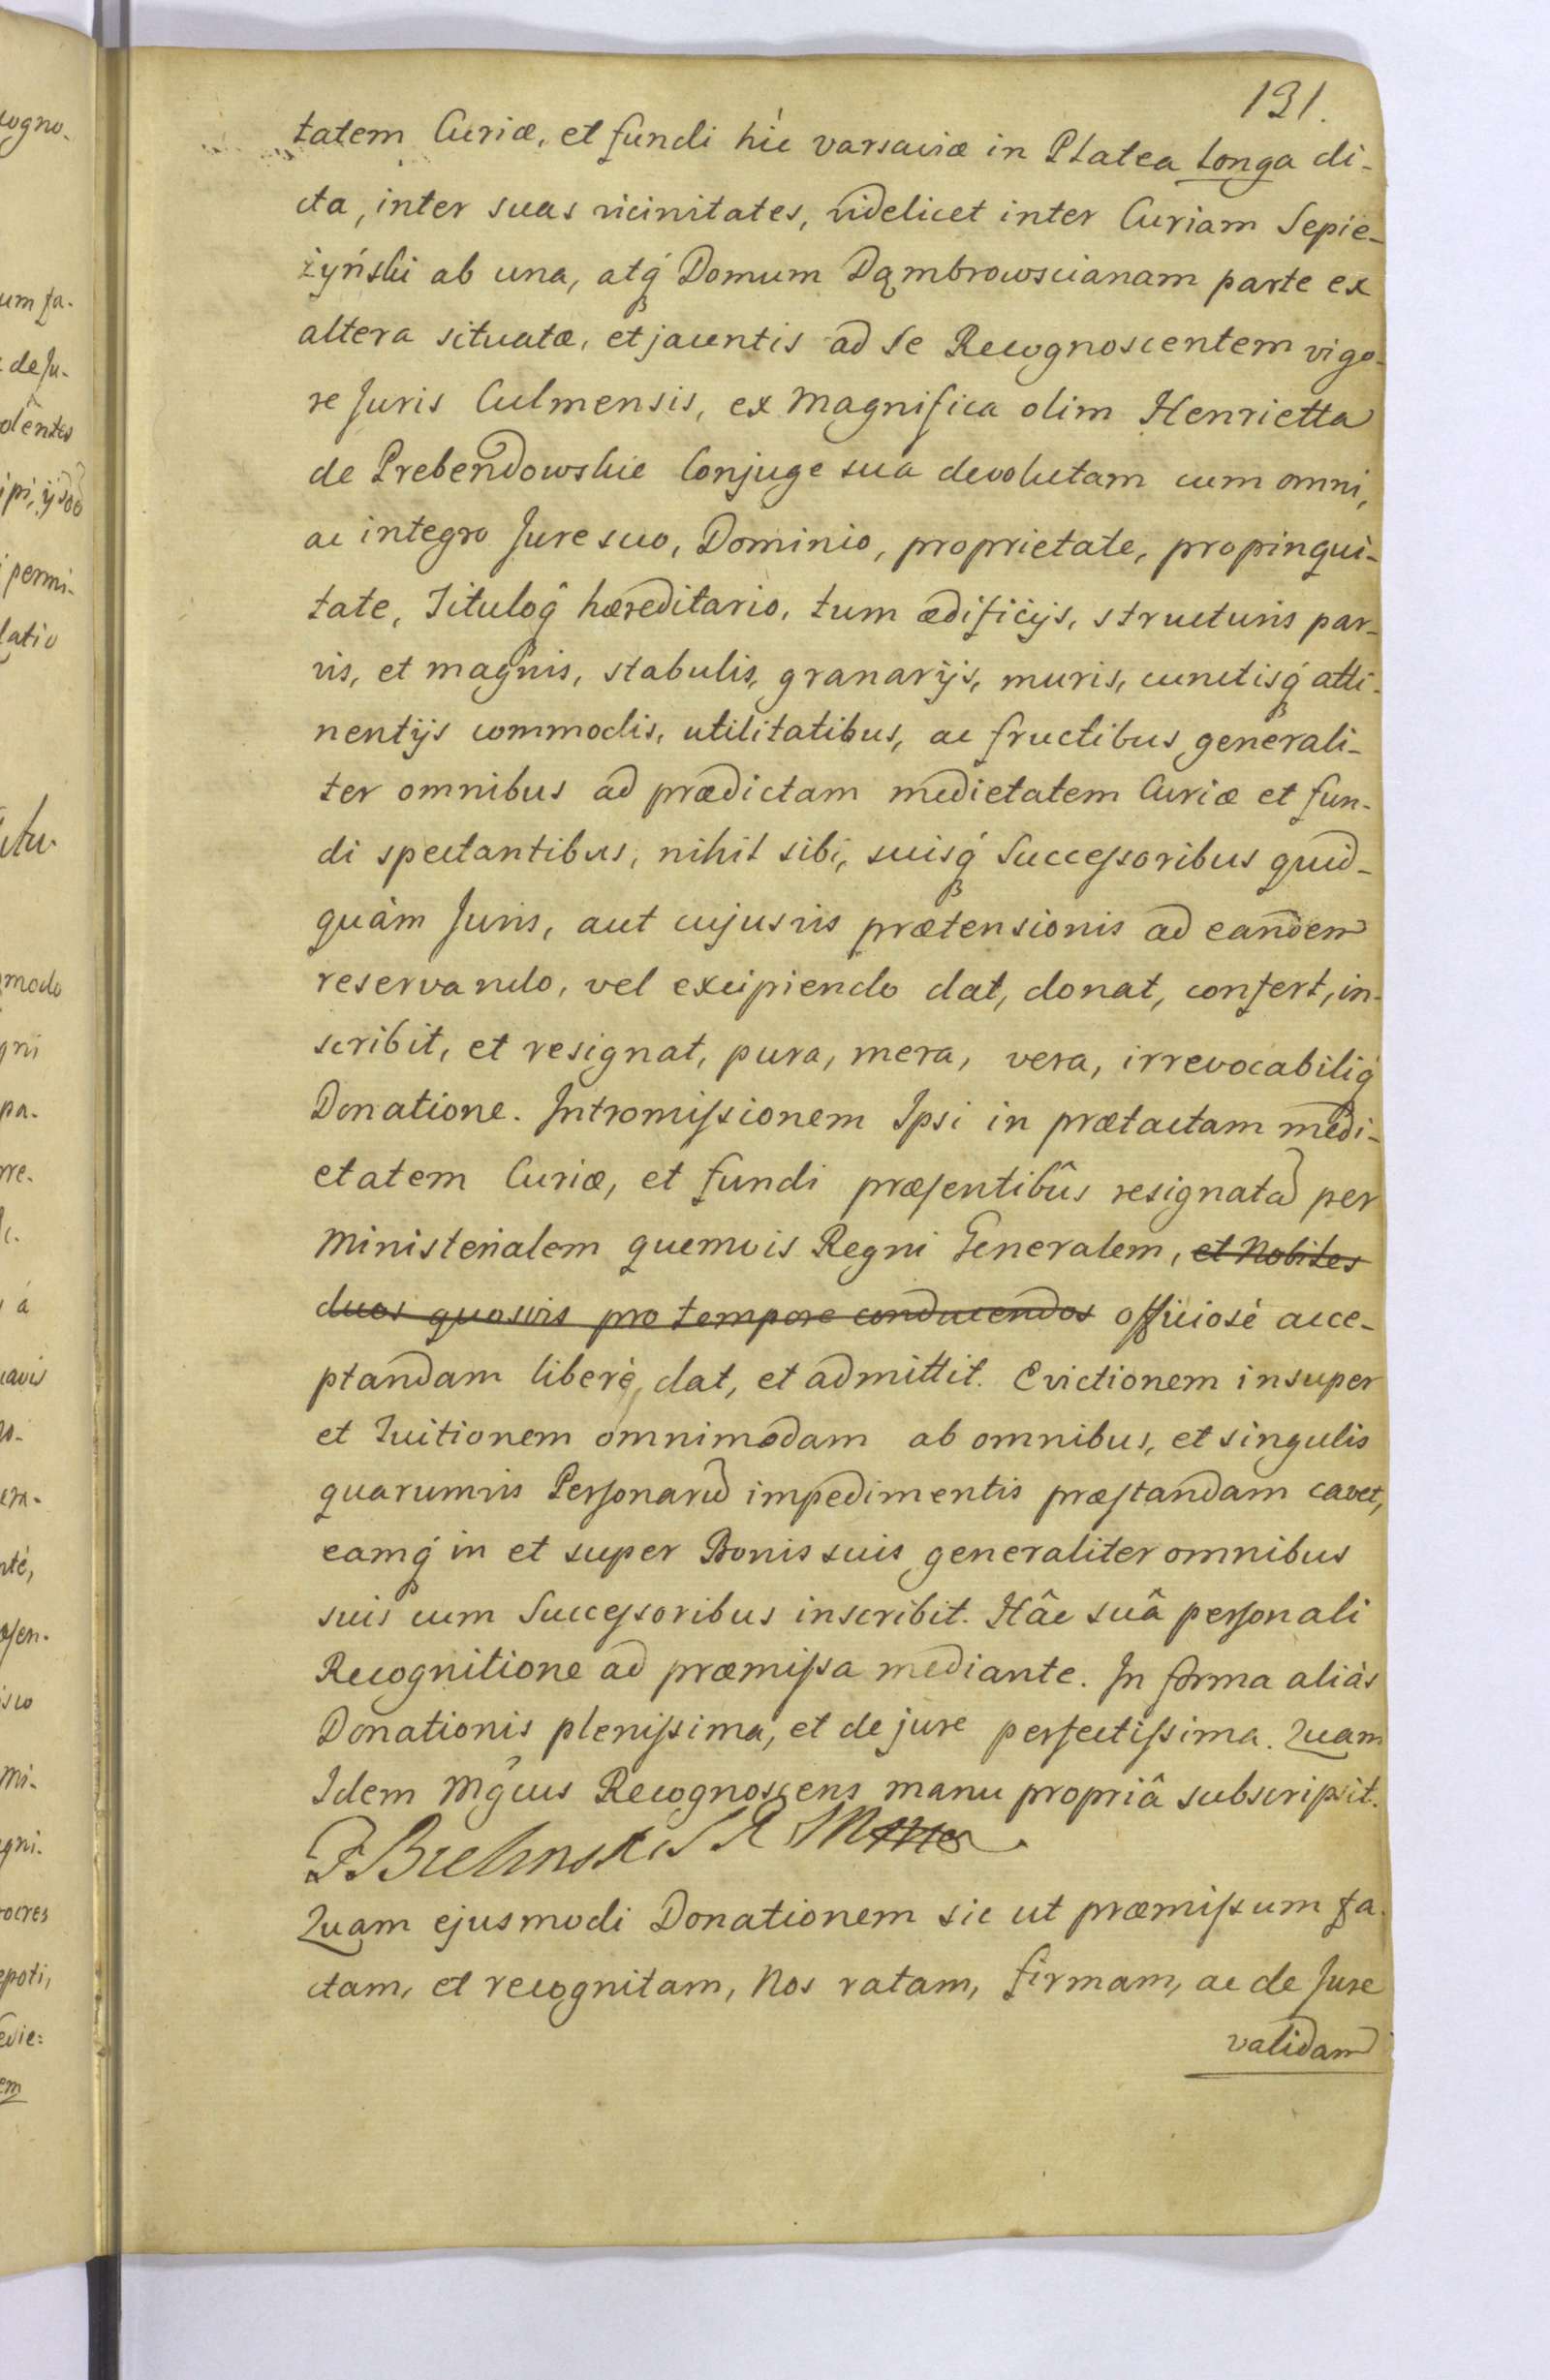 131.
tatem Curiæ, et fundi hìc varsaviæ in Platea Longa di-
cta, inter suas vicinitates, videlicet inter Curiam Sepie-
żyński ab una, atq́ Domum Dąmbrowscianam parte ex
altera situatæ, et jacentis ad se Recognoscentem vigo-
re Juris Culmensis, ex Magnifica olim Henrietta
de Prebendowskie Conjuge sua devolutam cum omni,
ac integro Jure suo, Dominio, proprietate, propinqui-
tate, Tituloq̂ hæreditario, tum ædificijs, structuris par-
vis, et magnis, stabulis, granarijs, muris, cunctisq́ atti-
nentijs commodis, utilitatibus, ac fructibus generali-
ter omnibus ad prædictam medietatem Curiæ et fun-
di spectantibus, nihil sibi, suisq́ Successoribus quid-
quàm Juris, aut cujusvis prætensionis ad eandem
reservando, vel excipiendo dat, donat, confert, in-
scribit, et resignat, pura, mera, vera, irrevocabiliq́
Donatione. Intromissionem Ipsi in prætactam medi-
etatem Curiæ, et fundi præsentibûs resignatã per
Ministerialem quemvis Regni Generalem, et Nobiles
duos quosvis pro tempore conducendos officiosè acce-
ptandam liberè dat, et admittit. Evictionem insuper
et Tuitionem omnimodam ab omnibus, et singulis
quarumvis Personarũ impedimentis præstandam cavet,
eamq́ in et super Bonis suis generaliter omnibus
suis cum Successoribus inscribit. Hâc suâ personali
Recognitione ad præmissa mediante. In forma aliàs
Donationis plenissima, et de jure perfectissima. Quam
Idem Mgĉus Recognoscens manu propriâ subscripsit.
F. Bielinski
Quam ejusmodi Donationem sic ut præmissum fa-
ctam, et recognitam, Nos ratam, firmam, ac de Jure
validam